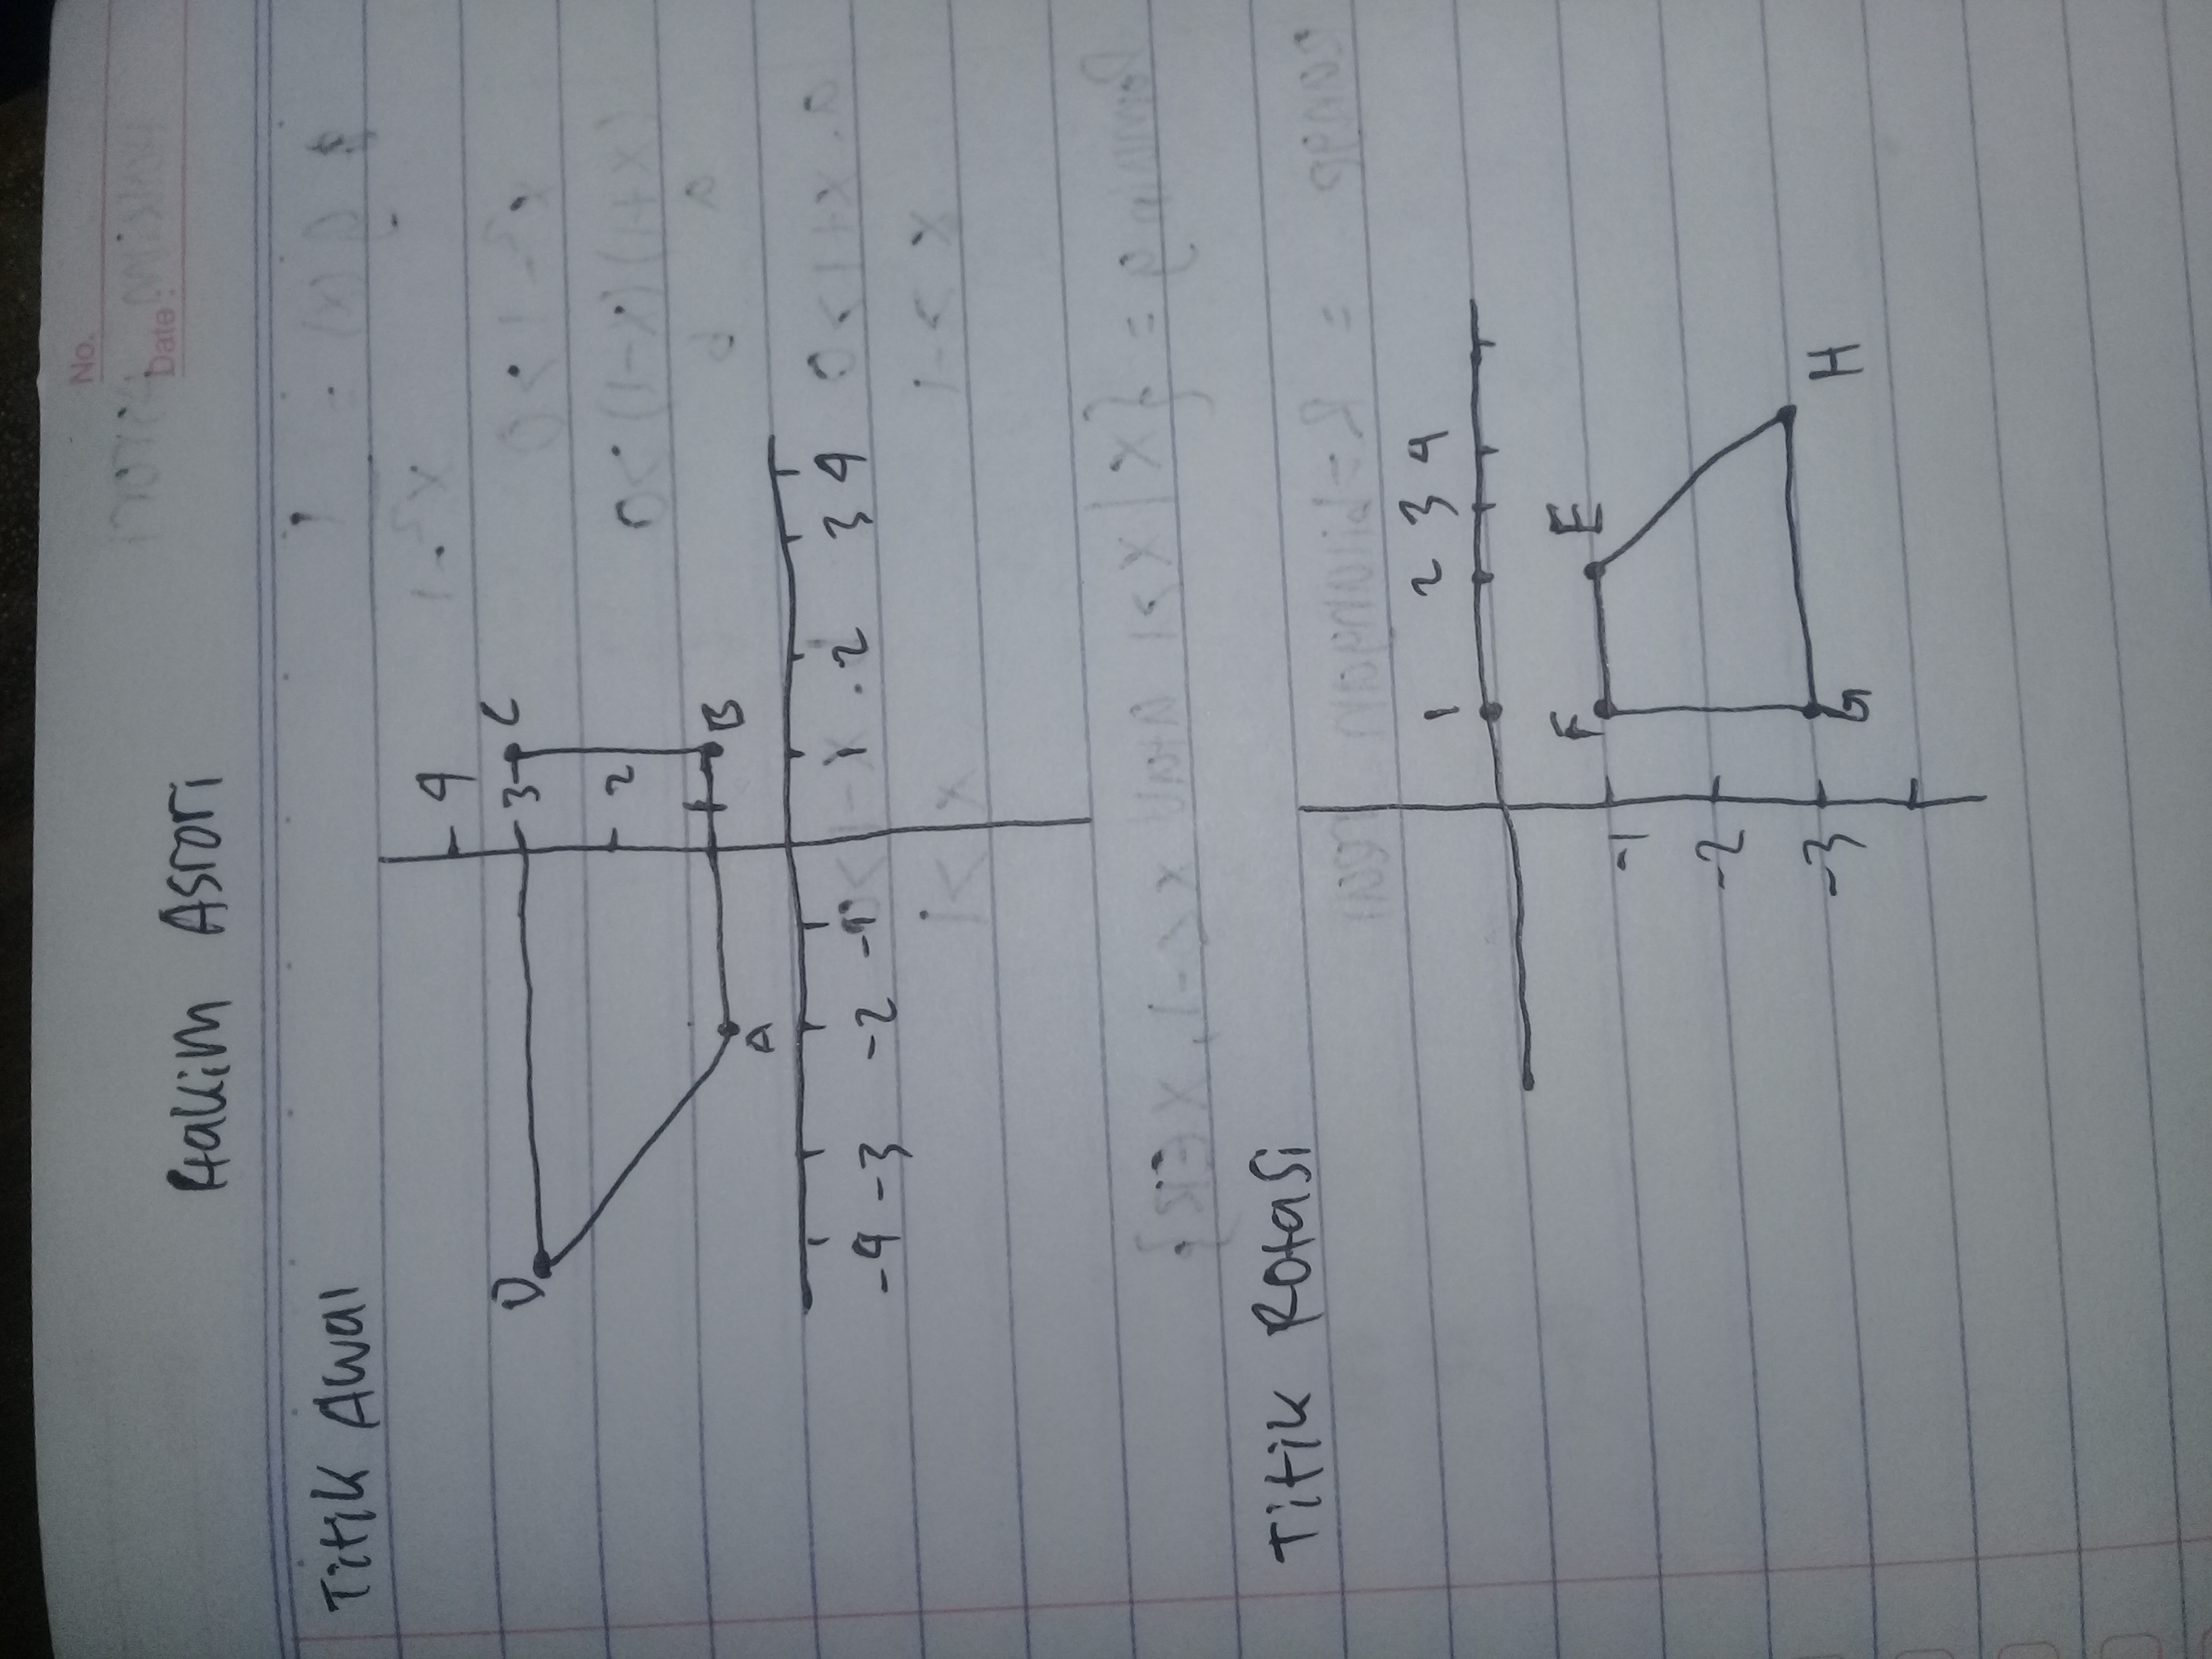 No.
Date:
Hakim Asrori
Titik Awal
4
D 3 C
2
1 B
A
-4 -3 -2 -1 1 2 3 4
Titik Rotasi
1 2 3 4
F E
-1
-2
-3 G H